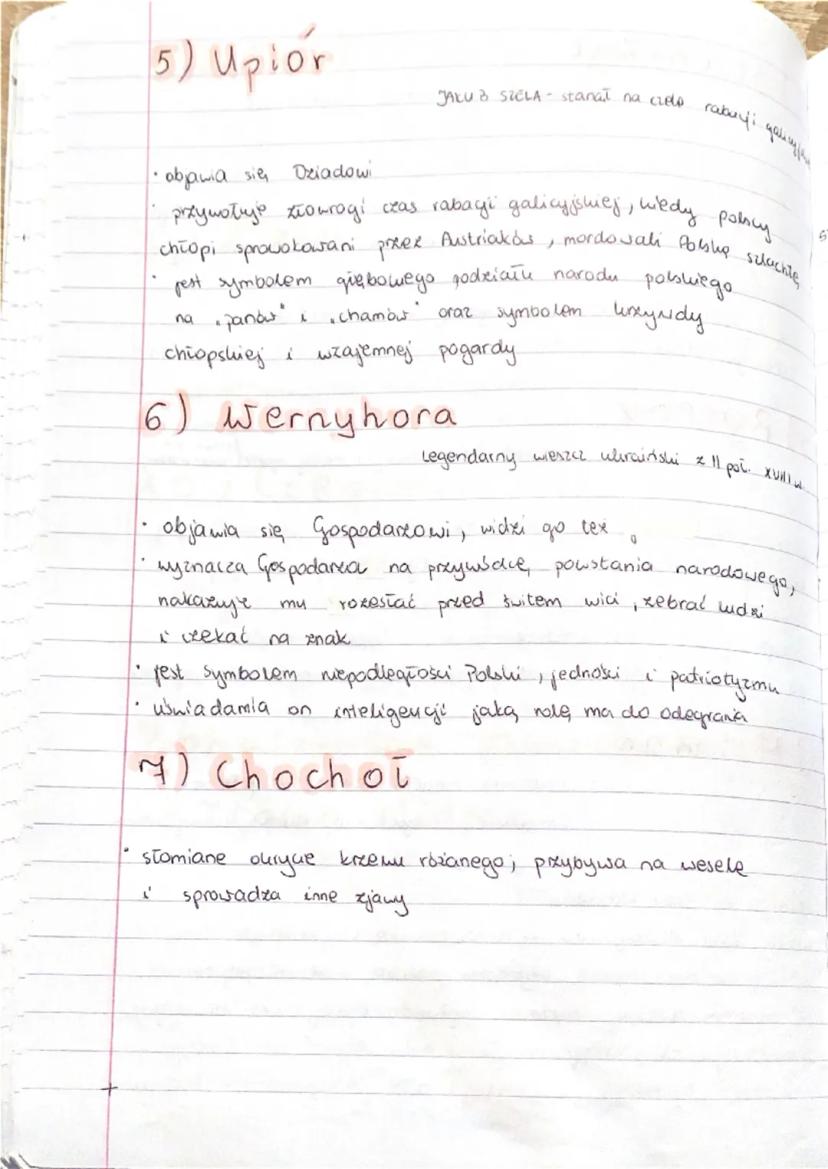 5) Upiór
JAKUB SZELA - stanął na czele rabacji galicyjskiej
• objawia się Dziadowi
• przywołuje złowrogi czas rabacji galicyjskiej, kiedy polscy
chłopi sprowokowani przez Austriaków, mordowali Polską szlachtę
• jest symbolem głębowego podziału narodu polskiego
na „panów" i „chamów" oraz symbolem krzywdy
chłopskiej i wzajemnej pogardy
6) Wernyhora
Legendarny wieszcz ukraiński z II poł. XVIII w
• objawia się Gospodarzowi, widzi go też
• wyznacza Gospodarza na przywódcę powstania narodowego,
nakazuje mu rozesłać przed świtem wici, zebrać ludzi
i czekać na znak
• jest symbolem niepodległości Polski, jedności i patriotyzmu
• uświadamia on inteligencji jaką rolę ma do odegrania
7) Chochoł
• słomiane okrycie krzewu różanego; przybywa na wesele
i sprowadza inne zjawy